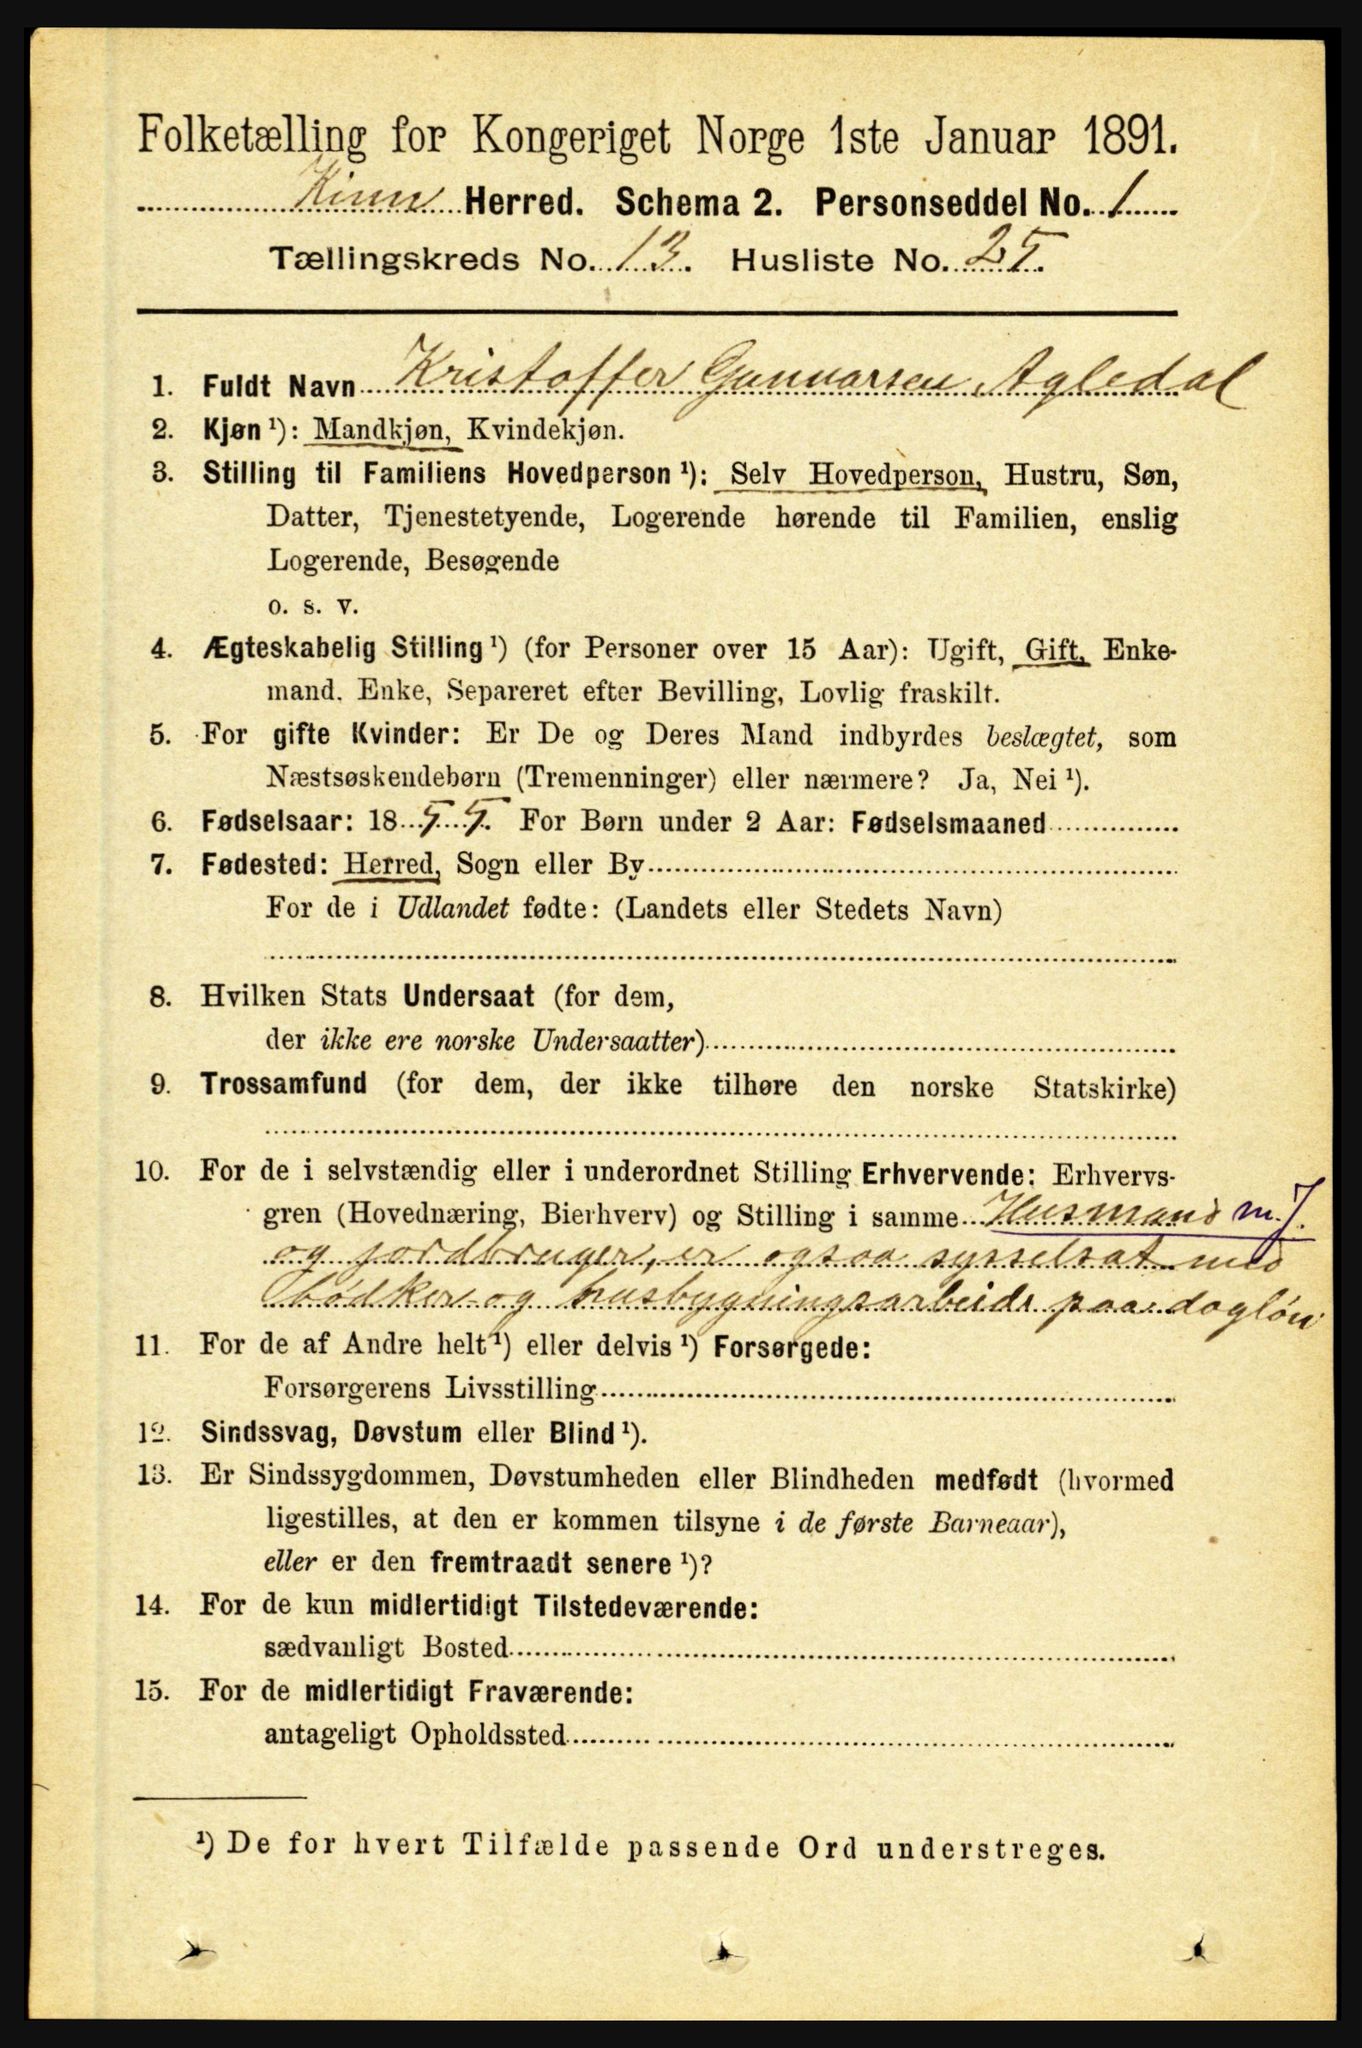 Folketælling for Kongeriget Norge 1ste Januar 1891.
Kinn Herred. Schema 2. Personseddel No. 1
Tællingskreds No. 13. Husliste No. 25.
1. Fuldt Navn Kristoffer Gunnarsen Agledal
2. Kjøn ¹): Mandkjøn, Kvindekjøn.
3. Stilling til Familiens Hovedperson ¹): Selv Hovedperson, Hustru, Søn,
Datter, Tjenestetyende, Logerende hørende til Familien, enslig
Logerende, Besøgende
o. s. v.
4. Ægteskabelig Stilling ¹) (for Personer over 15 Aar): Ugift, Gift, Enke-
mand, Enke, Separeret efter Bevilling, Lovlig fraskilt.
5. For gifte Kvinder: Er De og Deres Mand indbyrdes beslægtet, som
Næstsøskendebørn (Tremenninger) eller nærmere? Ja, Nei ¹).
6. Fødselsaar: 1855. For Børn under 2 Aar: Fødselsmaaned
7. Fødested: Herred, Sogn eller By
For de i Udlandet fødte: (Landets eller Stedets Navn)
8. Hvilken Stats Undersaat (for dem,
der ikke ere norske Undersaatter)
9. Trossamfund (for dem, der ikke tilhøre den norske Statskirke)
10. For de i selvstændig eller i underordnet Stilling Erhvervende: Erhvervs-
gren (Hovednæring, Bierhverv) og Stilling i samme Husmand m. J.
og jordbruger, er ogsaa sysselsat med
bødker og husbygningsarbeide paa dagløn
11. For de af Andre helt ¹) eller delvis ¹) Forsørgede:
Forsørgerens Livsstilling
12. Sindssvag, Døvstum eller Blind ¹).
13. Er Sindssygdommen, Døvstumheden eller Blindheden medfødt (hvormed
ligestilles, at den er kommen tilsyne i de første Barneaar),
eller er den fremtraadt senere ¹)?
14. For de kun midlertidigt Tilstedeværende:
sædvanligt Bosted
15. For de midlertidigt Fraværende:
antageligt Opholdssted
¹) De for hvert Tilfælde passende Ord understreges.